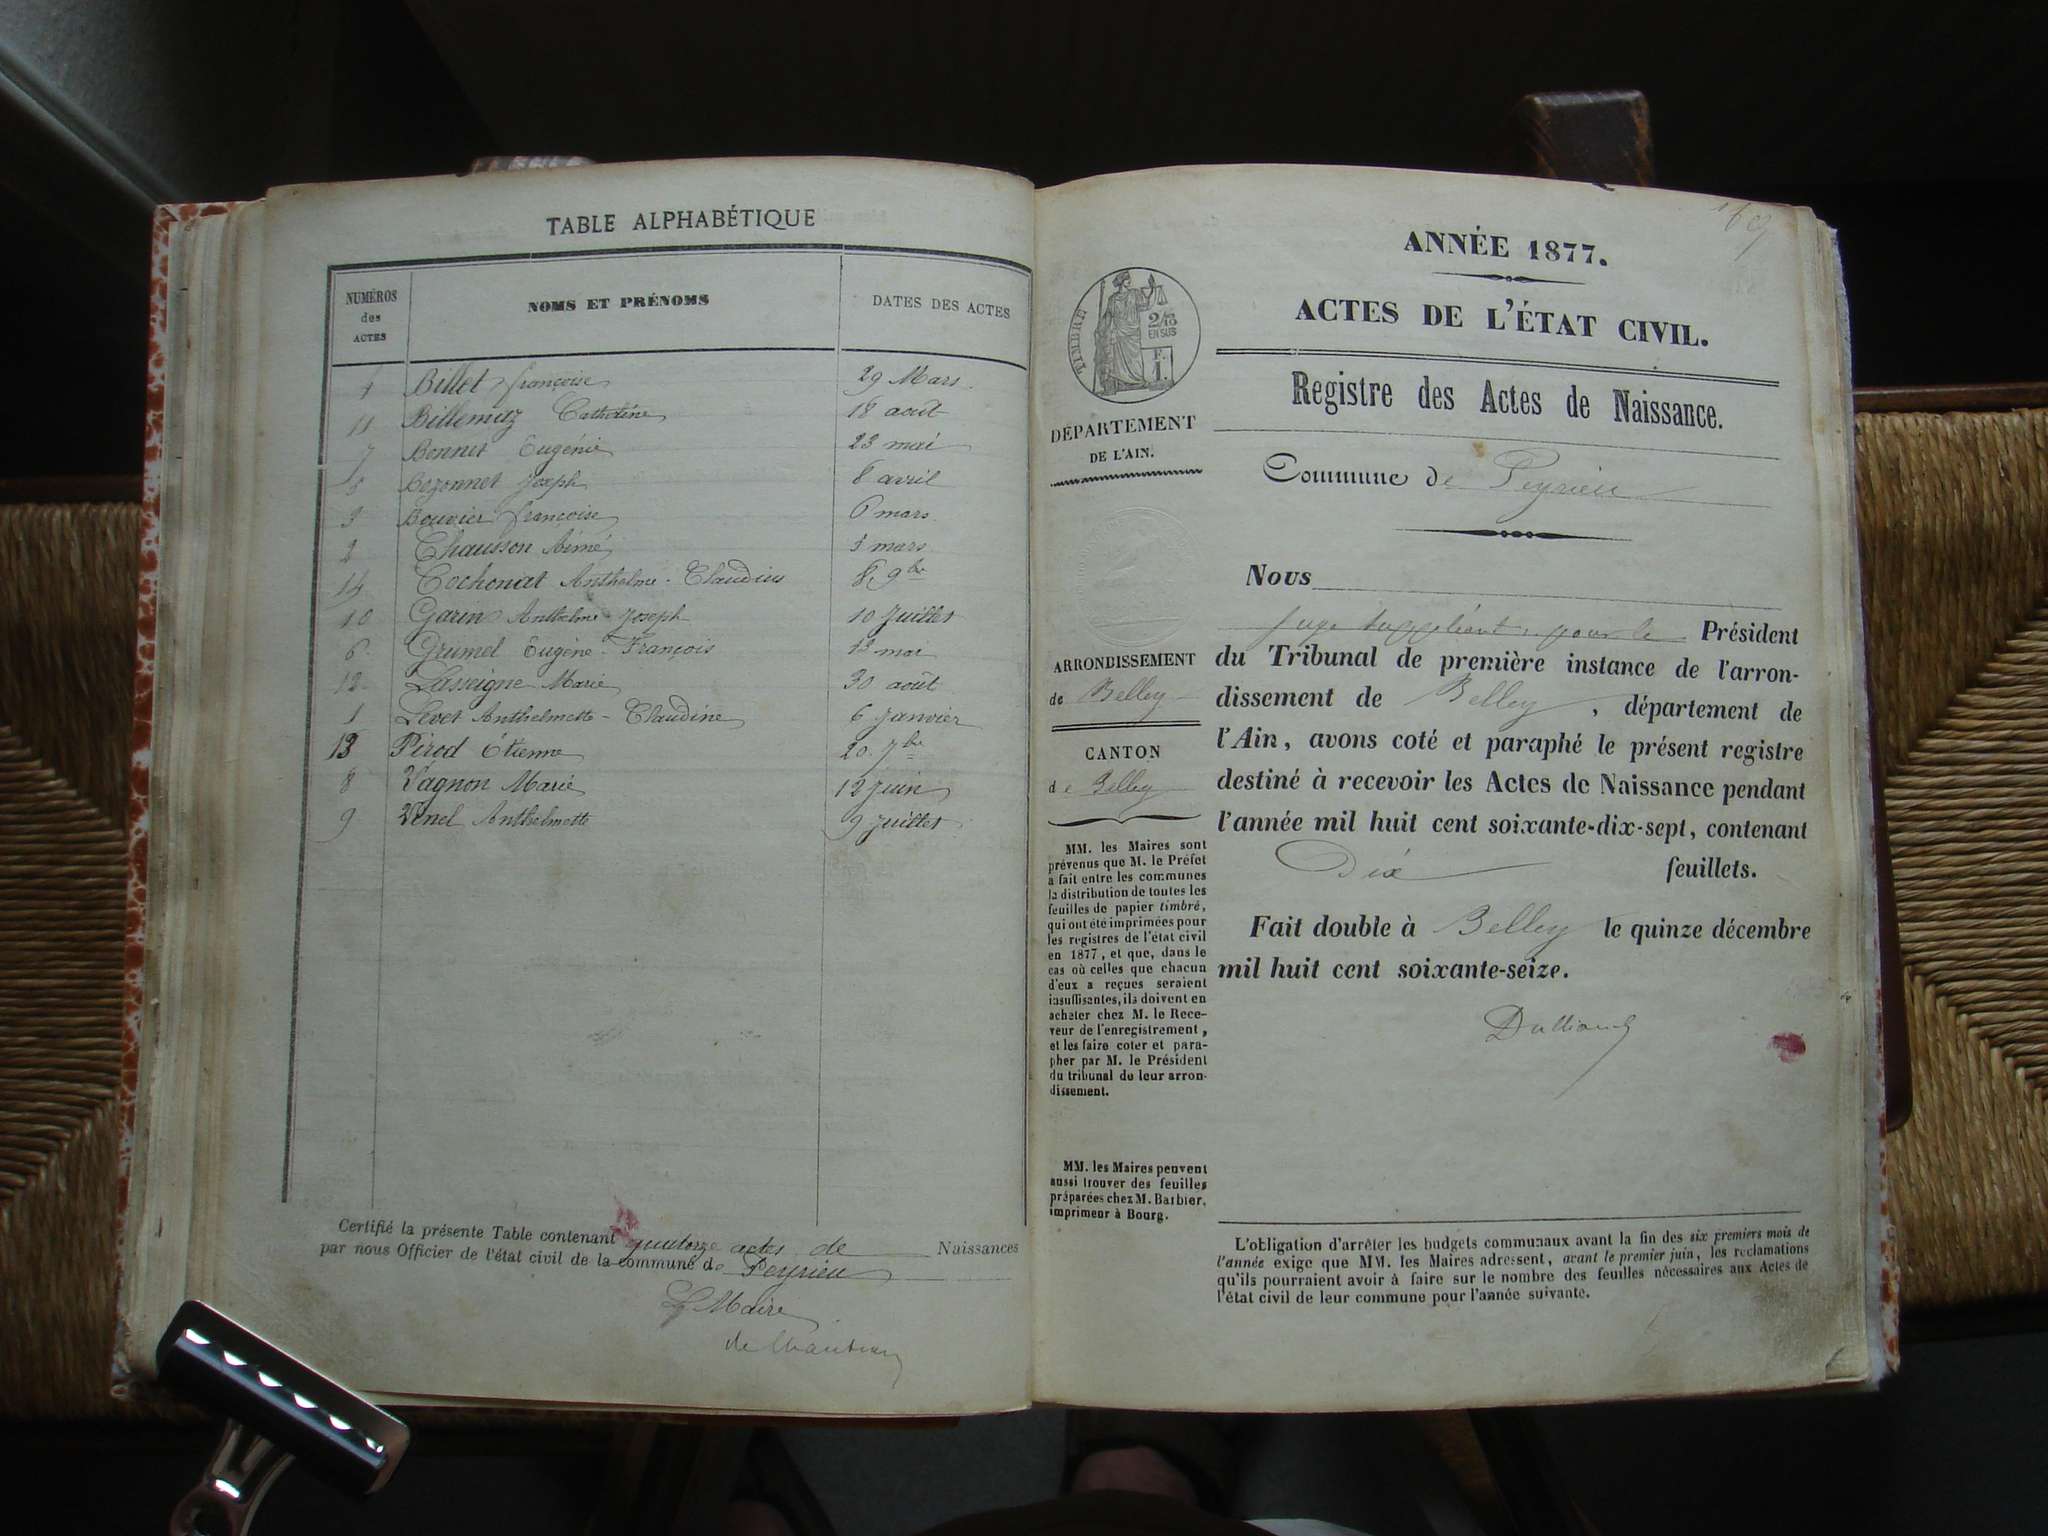 TABLE ALPHABÉTIQUE
NUMÉROS des ACTES
NOMS ET PRÉNOMS
DATES DES ACTES
4 Billet françoise 29 Mars
11 Billemaz Catherine 18 août
7 Bonnet Eugénie 23 mai
5 Bozonnet Joseph 8 avril
3 Bouvier françoise 6 mars
2 Chausson Aimé 3 mars
14 Cochonat Anthelme-Claudius 8 9bre
10 Garin Anthelme Joseph 10 Juillet
6 Grumel Eugène-François 13 mai
12 Lasseigne Marie 30 août
1 Levet Anthelmette-Claudine 6 Janvier
13 Pirod Étienne 20 7bre
8 Vagnon Marie 12 Juin
9 Venel Anthelmette 9 Juillet
Certifié la présente Table contenant quatorze actes de Naissances
par nous Officier de l'état civil de la commune de Peyrieu
Le Maire
169
ANNÉE 1877.
ACTES DE L'ÉTAT CIVIL.
Registre des Actes de Naissance.
TIMBRE
2/10
EN SUS
F.
1.
DÉPARTEMENT
DE L'AIN.
Commune de Peyrieu
Nous
Juge suppléant, pour le Président
du Tribunal de première instance de l'arron-
dissement de Belley, département de
l'Ain, avons coté et paraphé le présent registre
destiné à recevoir les Actes de Naissance pendant
l'année mil huit cent soixante-dix-sept, contenant
Dix feuillets.
Fait double à Belley le quinze décembre
mil huit cent soixante-seize.
ARRONDISSEMENT
de Belley
CANTON
de Belley
MM. les Maires sont
prévenus que M. le Préfet
a fait entre les communes
la distribution de toutes les
feuilles de papier timbré,
qui ont été imprimées pour
les registres de l'état civil
en 1877, et que, dans le
cas où celles que chacun
d'eux a reçues seraient
insuffisantes, ils doivent en
acheter chez M. le Rece-
veur de l'enregistrement,
et les faire coter et para-
pher par M. le Président
du tribunal de leur arron-
dissement.
MM. les Maires peuvent
aussi trouver des feuilles
préparées chez M. Barbier,
imprimeur à Bourg.
L'obligation d'arrêter les budgets communaux avant la fin des six premiers mois de
l'année exige que MM. les Maires adressent, avant le premier juin, les réclamations
qu'ils pourraient avoir à faire sur le nombre des feuilles nécessaires aux Actes de
l'état civil de leur commune pour l'année suivante.